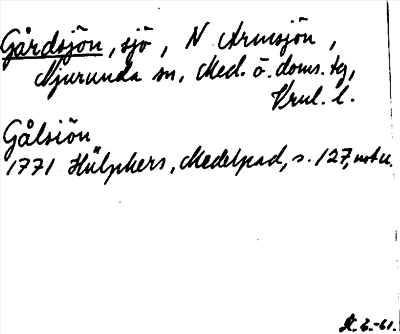 Gårdsjön, sjö, N Armsjön,
Njurunda sn, Med. ö. doms. tg,
Vrnl. l.
Gålsiön
1771 Hülphers, Medelpad, s. 127, not u.
-61.